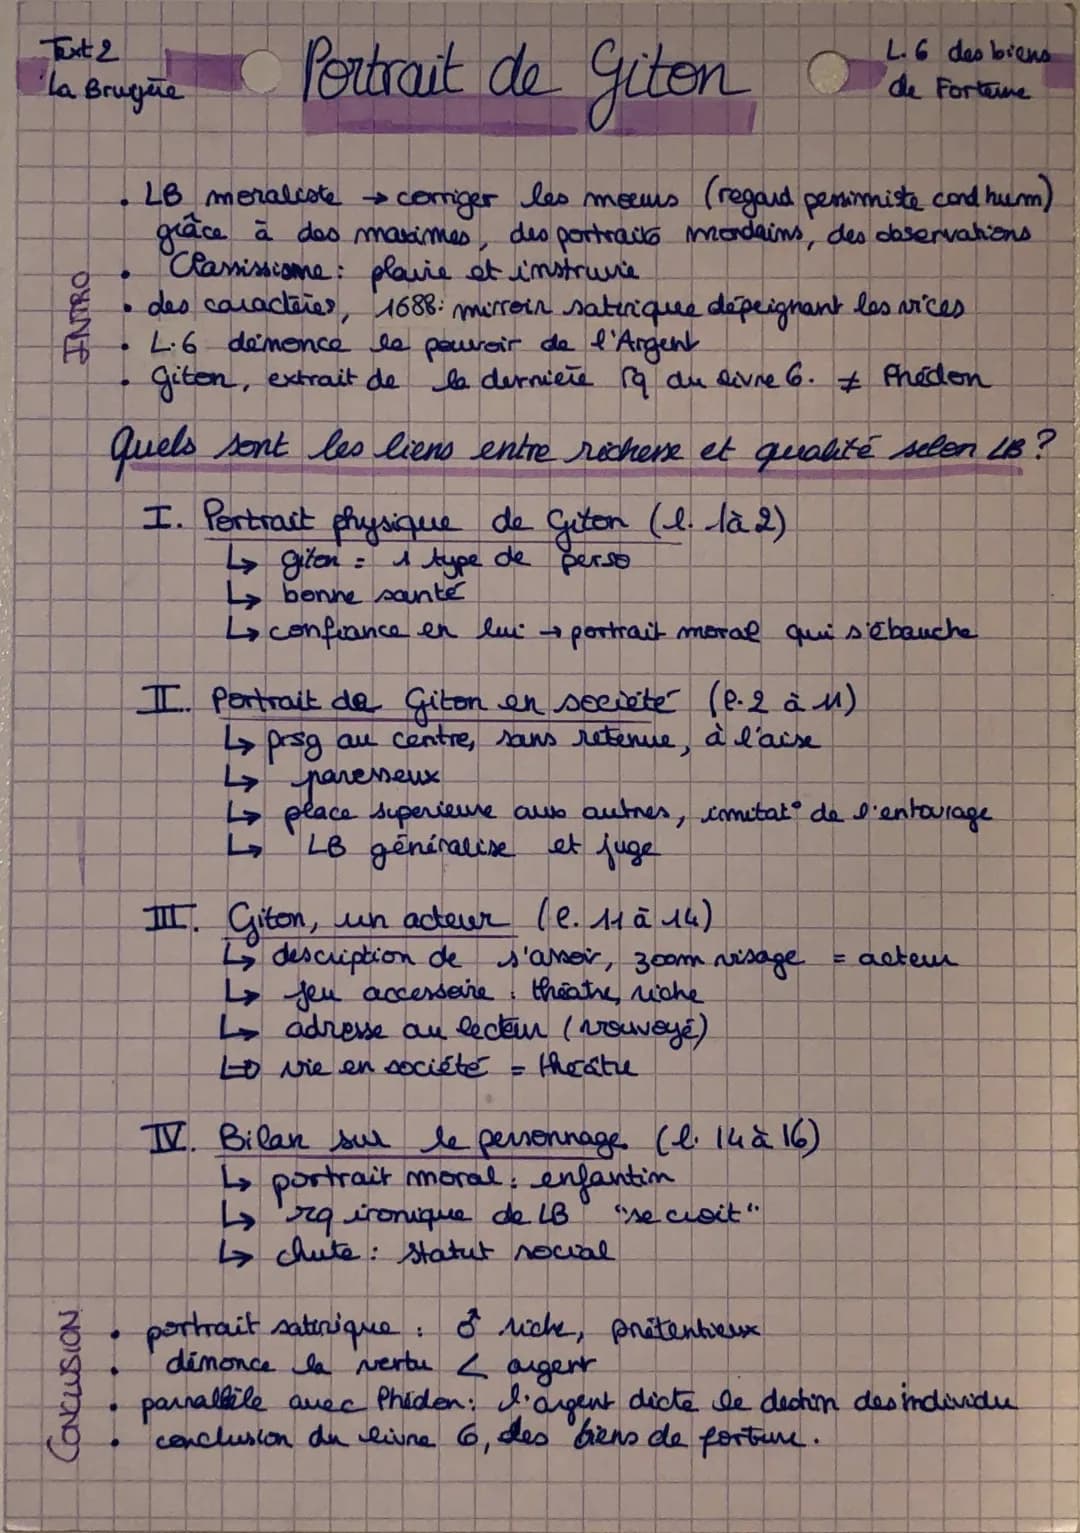 Text 2
La Bruyère
Portrait de Giton
L. 6 des biens
de Fortune
INTRO
• LB moraliste → corriger les moeurs (regard pessimiste cond hum)
grâce à des maximes, des portraits mondains, des observations
• Classissisme : plaire et instruire
• des caractères, 1688: mirroir satirique dépeignant les vices
• L.6 dénonce le pouvoir de l'Argent
• Giton, extrait de la dernière rq du livre 6. ≠ Phédon
Quels sont les liens entre richesse et qualité selon LB ?
I. Portrait physique de Giton (l. 1 à 2)
↳ giton = 1 type de perso
↳ bonne santé
↳ confiance en lui → portrait moral qui s'ébauche
II. Portrait de Giton en société (l. 2 à 11)
↳ prsg au centre, sans retenue, à l'aise
↳ paresseux
↳ place supérieure aux autres, imitat° de l'entourage
↳ LB généralise et juge
III. Giton, un acteur (l. 11 à 14)
↳ description de s'assoir, zoom visage = acteur
↳ jeu accessoire : théâtre, riche
↳ adresse au lecteur (vouvoyé)
⇒ vie en société = théâtre
IV. Bilan sur le personnage (l. 14 à 16)
↳ portrait moral : enfantin
↳ rq ironique de LB "se croit"
↳ chute : statut social
CONCLUSION
• portrait satirique : ♂ riche, prétentieux
• dénonce la vertu < argent
• parrallèle avec Phédon : l'argent dicte le destin des individu
• conclusion du livre 6, des biens de fortune.